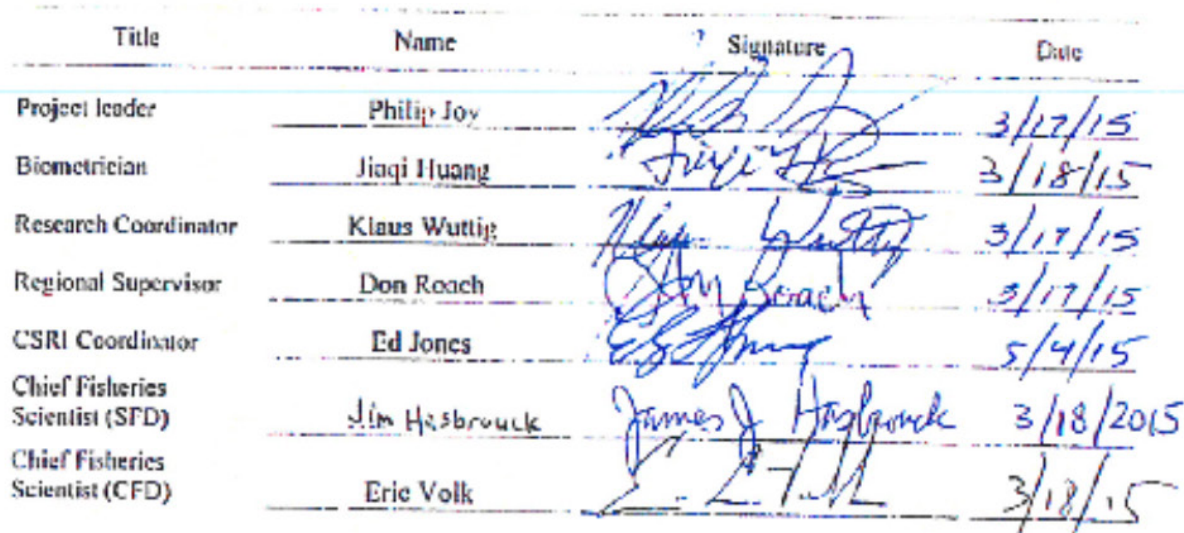 Title Name Signature Date
Project leader Philip Joy 3/17/15
Biometrician Jiaqi Huang Jiaqi 3/18/15
Research Coordinator Klaus Wuttig Klaus Wuttig 3/17/15
Regional Supervisor Don Roach Don Roach 3/17/15
CSRI Coordinator Ed Jones 5/4/15
Chief Fisheries
Scientist (SFD) Jim Hasbrouck James J Hasbrouck 3/18/2015
Chief Fisheries
Scientist (CFD) Eric Volk 3/18/15